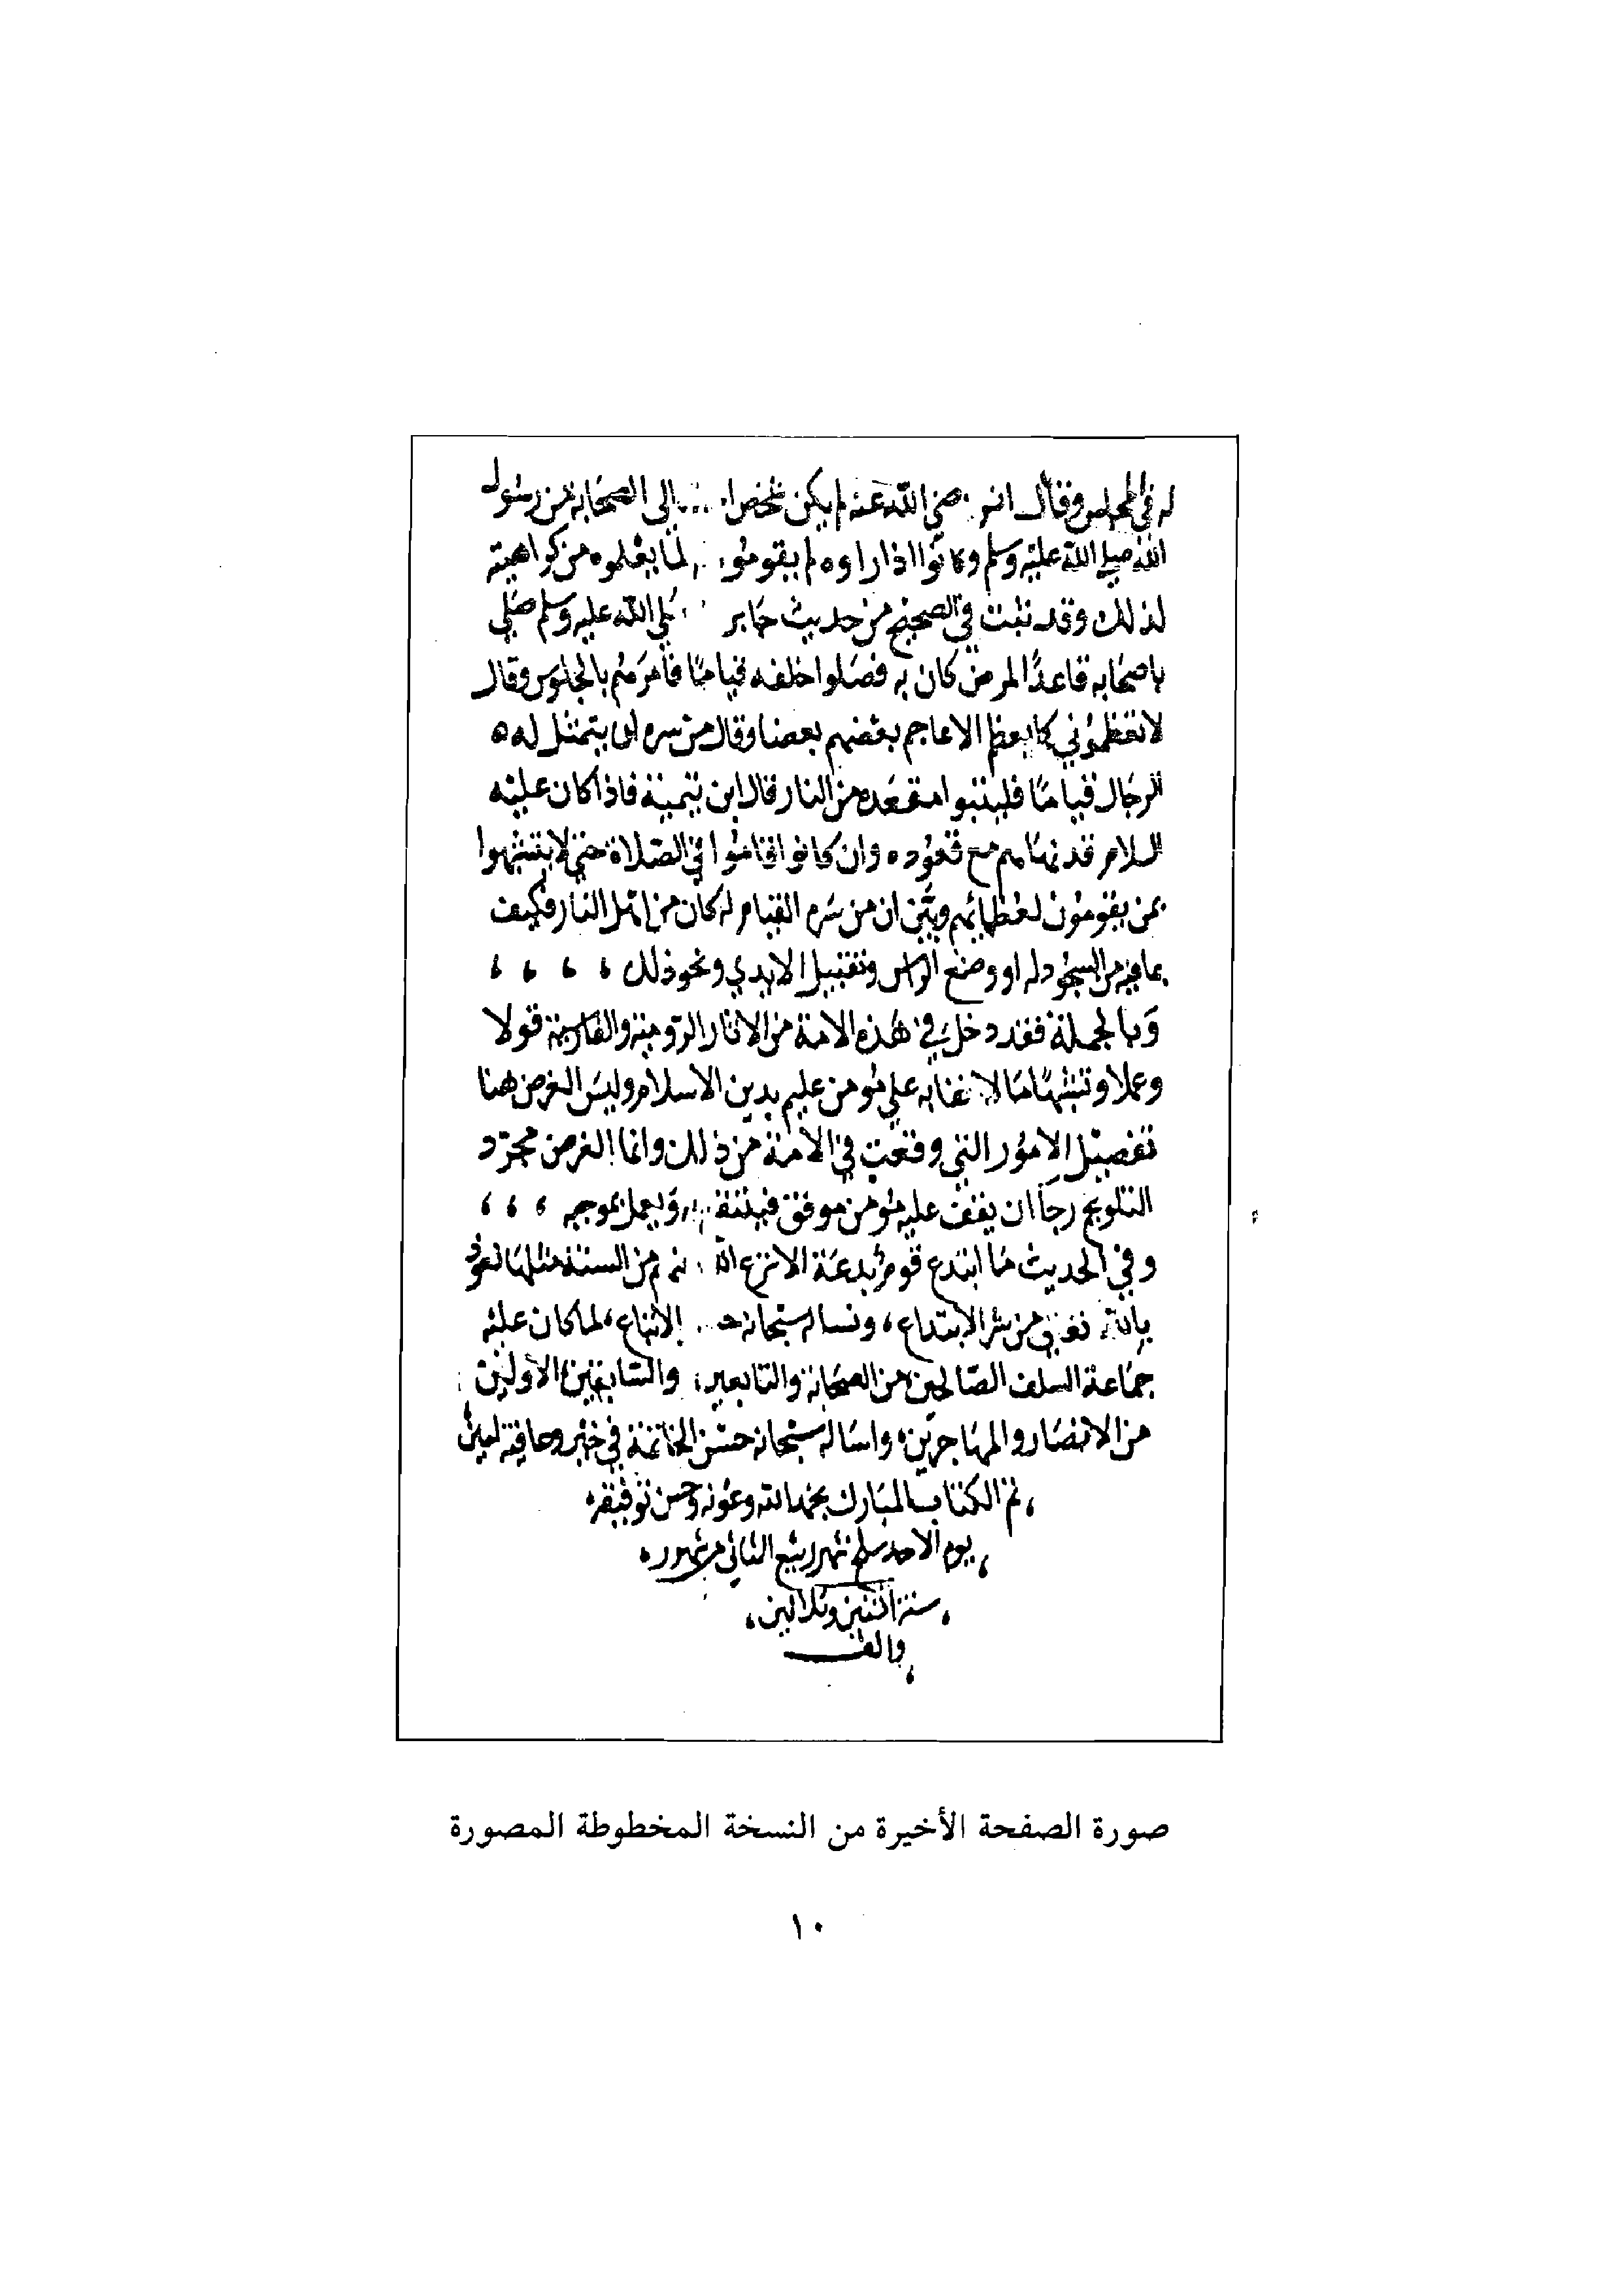 له في المجلس وقال انس رضي الله عنه لم يكن شخص احب الى الصحابة من رسول
الله صلى الله عليه وسلم وكانوا اذا راوه لم يقوموا لما يعلموه من كراهيته
لذلك وقد ثبت في الصحيح من حديث جابر صلي الله عليه وسلم صلي
باصحابه قاعدًا لمرض كان به فصلوا خلفه قيامًا فامرهم بالجلوس وقال
لا تعظموني كما يعظم الاعاجم بعضهم بعضا وقال من سره ان يتمثل له
الرجال قيامًا فليتبوا مقعده من النار قال ابن تيمية فاذا كان عليه
السلام قد نهاهم مع قعوده وان كانوا قاموا في الصلاة حتي لا يتشبهوا
بمن يقومون لعظمائهم وبين ان من سره القيام له كان من اهل النار فكيف
بما فيه من السجود له او وضع الراس وتقبيل الايدي ونحو ذلك ، ، ، ،
وبالجملة فقد دخل في هذه الامة من الاثار الرومية والفارسية قولا
وعملا وتشبهًا ما لا خفا به علي مومن عليم بدين الاسلام وليس الغرض هنا
تفصيل الامور التي وقعت في الامة من ذلك وانما الغرض مجرد
التلويح رجا ان يقف عليه مومن موفق فينتفع ويعمل بموجبه ، ، ،
وفي الحديث ما ابتدع قوم بدعة الا نزع الله من السنة مثلها نعوذ
بالله تعالى من شر الابتداع ، ونساله سبحانه الاتباع ، لما كان عليه
جماعة السلف الصالحين من الصحابة والتابعين ، والسابقين الاولين
من الانصار والمهاجرين ، واساله سبحانه حسن الخاتمة في خير وعافية امين
، تم الكتاب المبارك بحمد الله وعونه وحسن توفيقه ،
، يوم الاحد سلخ شهر ربيع الثاني من شهور ،
، سنة اثنين وثلاثين ،
، والف
صورة الصفحة الأخيرة من النسخة المخطوطة المصورة
١٠